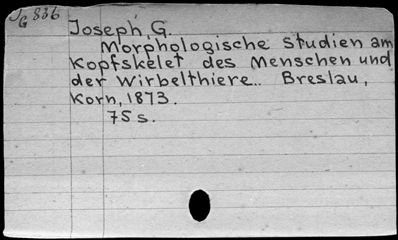 G 836
Joseph, G.
Morphologische Studien am
Kopfskelet des Menschen und
der Wirbelthiere.. Breslau,
Korn, 1873.
75 s.